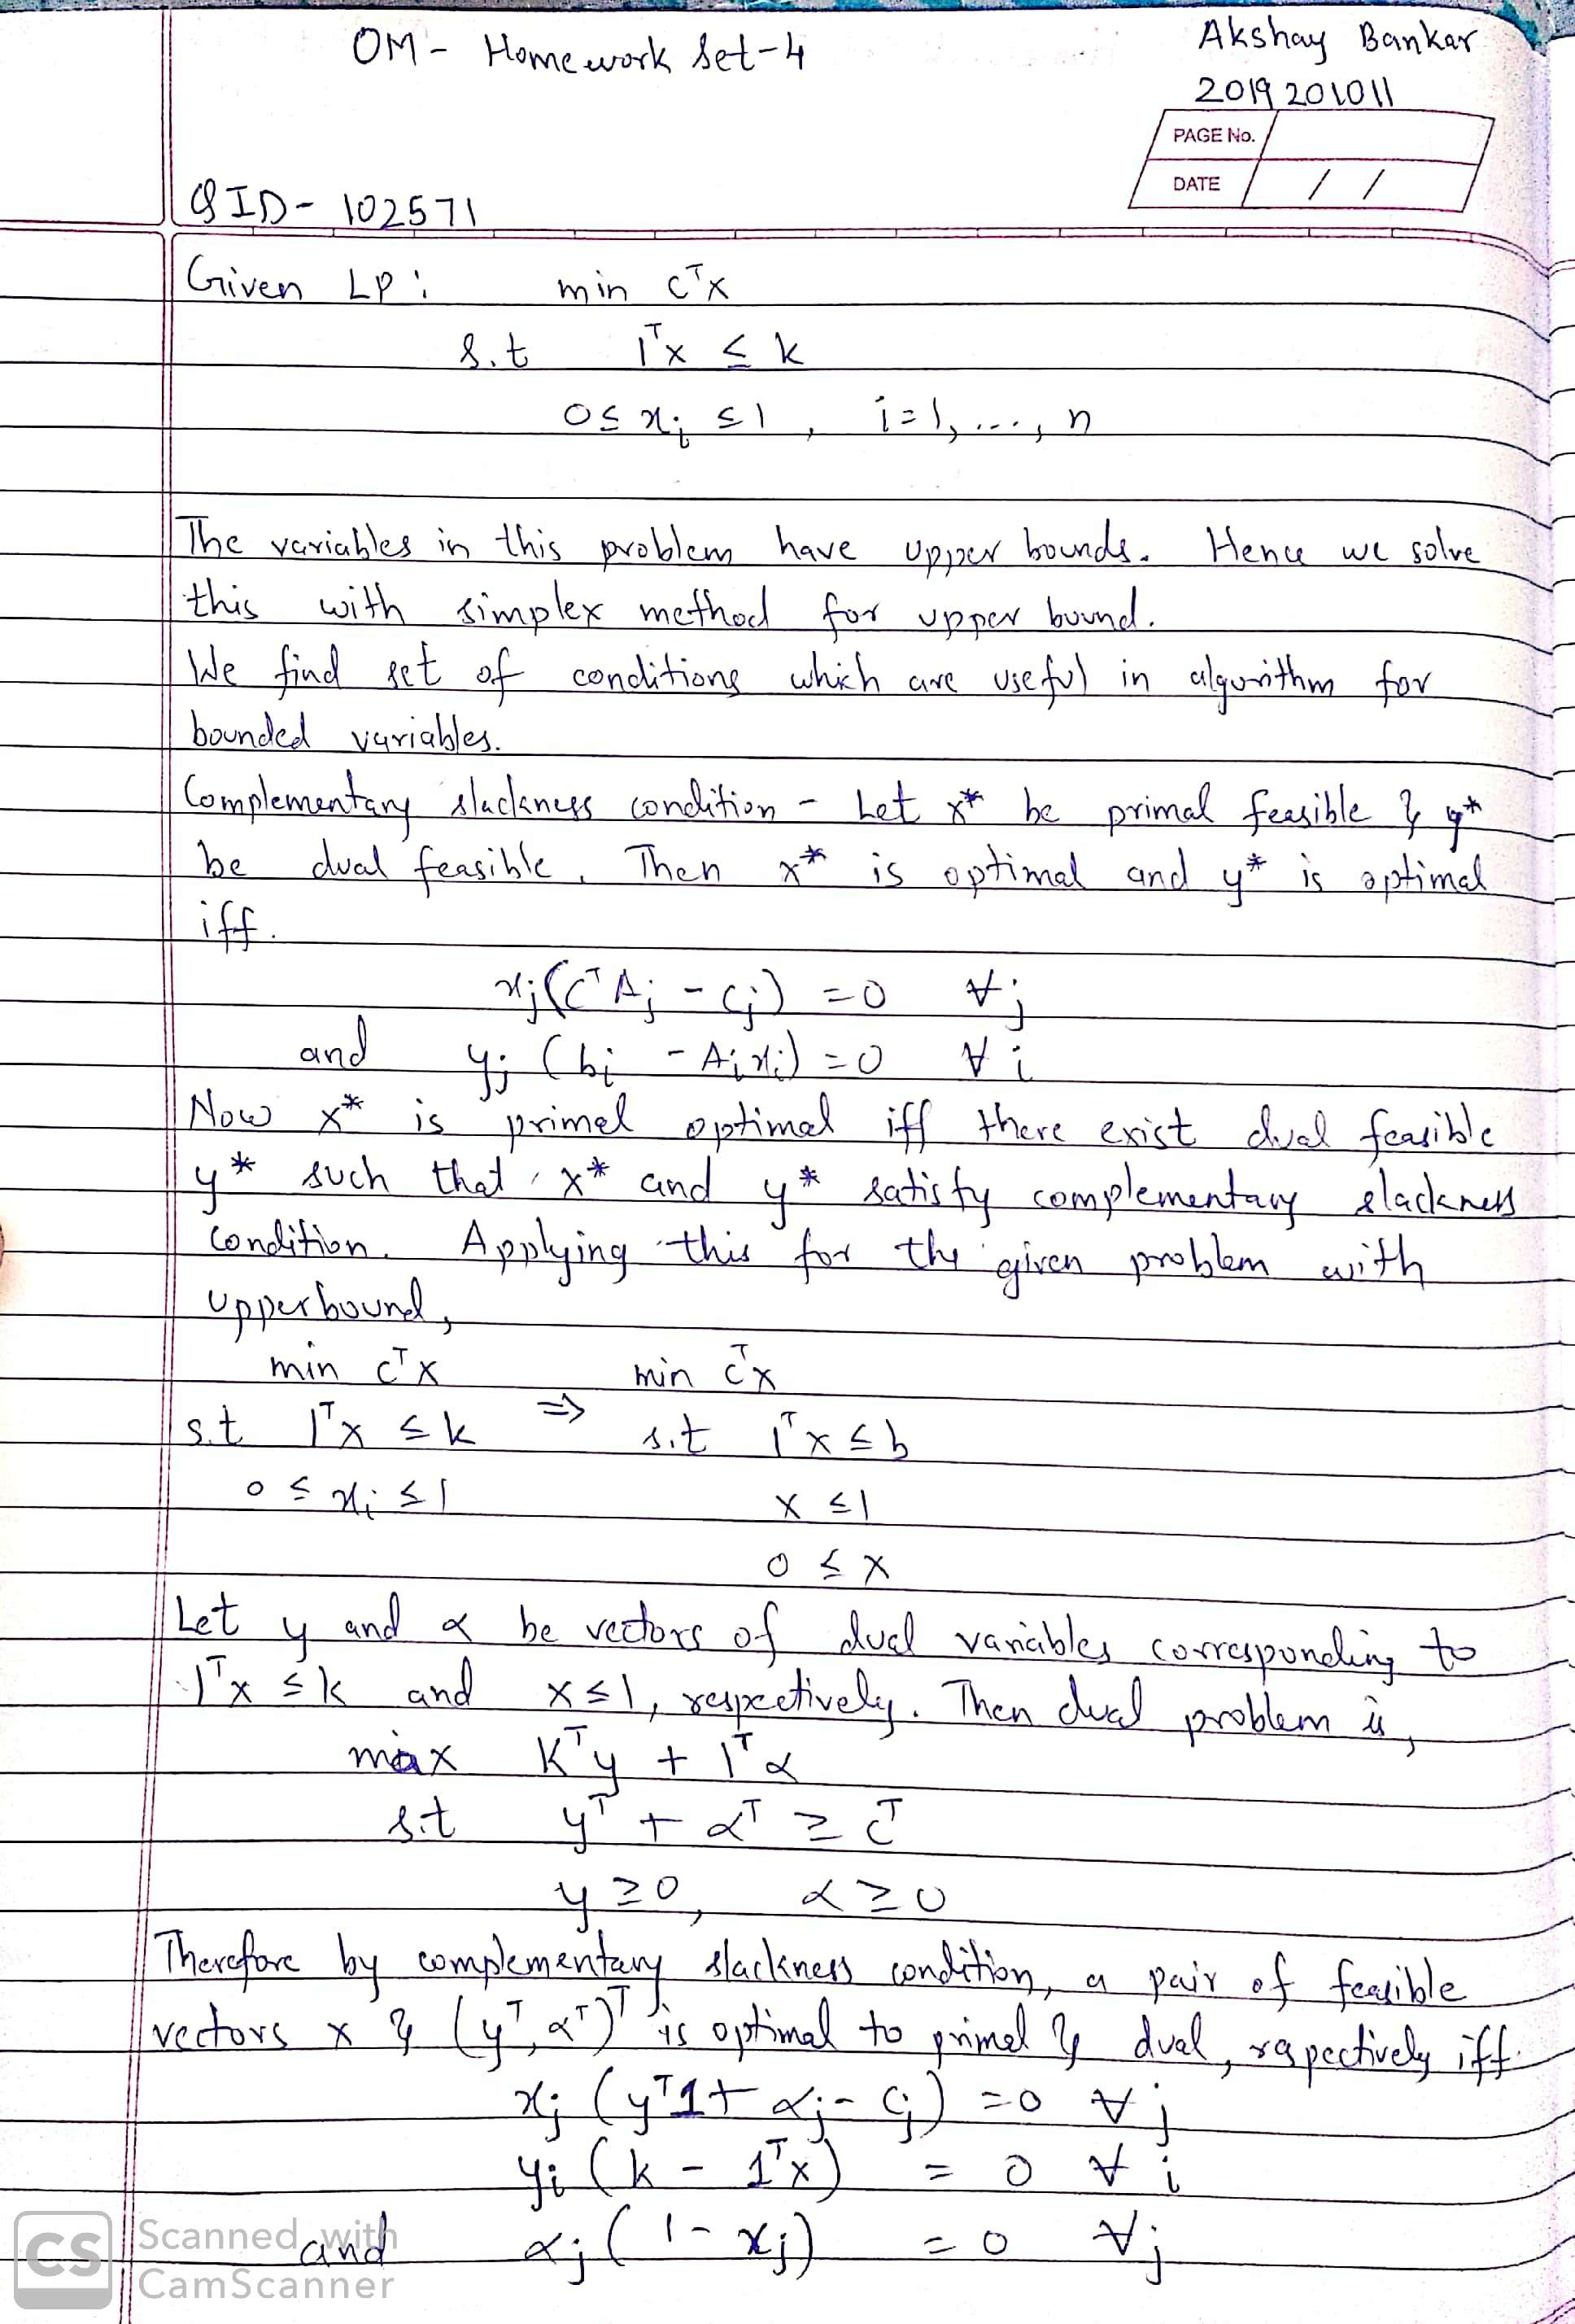 OM - Homework Set-4
Akshay Bankar
2019201011
PAGE No.
DATE / /
QID- 102571
Given LP: min cᵀx
s.t 1ᵀx ≤ k
0 ≤ xᵢ ≤ 1, i=1, ..., n
The variables in this problem have upper bounds. Hence we solve
this with simplex method for upper bound.
We find set of conditions which are useful in algorithm for
bounded variables.
Complementary slackness condition - Let x* be primal feasible & y*
be dual feasible. Then x* is optimal and y* is optimal
iff.
xⱼ(cᵀAⱼ - cⱼ) = 0 ∀ j
and yⱼ (bᵢ - Aᵢxᵢ) = 0 ∀ i
Now x* is primal optimal iff there exist dual feasible
y* such that x* and y* satisfy complementary slackness
condition. Applying this for the given problem with
upperbound,
min cᵀx min cᵀx
s.t 1ᵀx ≤ k ⇒ s.t 1ᵀx ≤ b
0 ≤ xᵢ ≤ 1 x ≤ 1
0 ≤ x
Let y and α be vectors of dual variables corresponding to
1ᵀx ≤ k and x ≤ 1, respectively. Then dual problem is,
max Kᵀy + 1ᵀα
s.t yᵀ + αᵀ ≥ cᵀ
y ≥ 0, α ≥ 0
Therefore by complementary slackness condition, a pair of feasible
vectors x & (yᵀ, αᵀ)ᵀ is optimal to primal & dual, respectively iff.
xⱼ (yᵀ1 + αⱼ - cⱼ) = 0 ∀ j
yᵢ (k - 1ᵀx) = 0 ∀ i
and αⱼ (1 - xⱼ) = 0 ∀ j
CS Scanned with
CamScanner